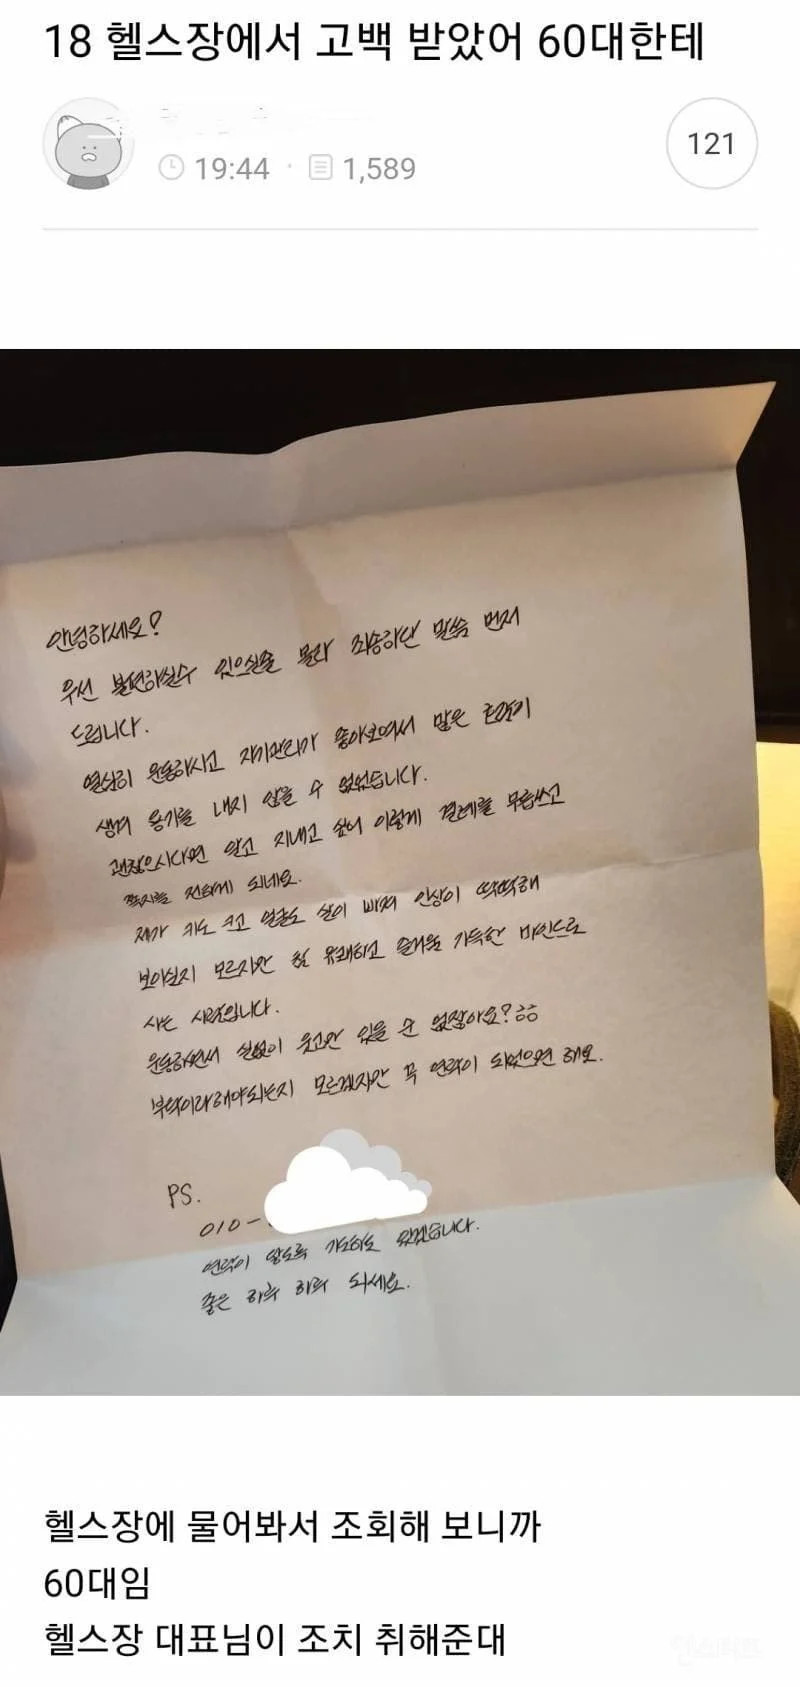 18 헬스장에서 고백 받았어 60대한테
19:44 · 1,589
121
안녕하세요!
우선 불편하실수 있으실줄 몰라 죄송하단 말씀 먼저
드립니다.
열심히 운동하시고 자기관리가 좋아보여서 많은 호감이
생겨 용기를 내지 않을 수 없었습니다.
괜찮으시다면 알고 지내고 싶어 이렇게 결례를 무릅쓰고
쪽지를 전하게 되네요.
제가 키도 크고 얼굴도 살이 빠져 인상이 딱딱해
보이실지 모르지만 참 유쾌하고 즐거움 가득한 마인드로
사는 사람입니다.
운동하면서 실없이 웃고만 있을 순 없잖아요?ㅎㅎ
부탁이라해야되는지 모르겠지만 꼭 연락이 되었으면 해요.
PS.
010-
연락이 않도록 기도하고 있겠습니다.
좋은 하루 하루 되세요.
헬스장에 물어봐서 조회해 보니까
60대임
헬스장 대표님이 조치 취해준대